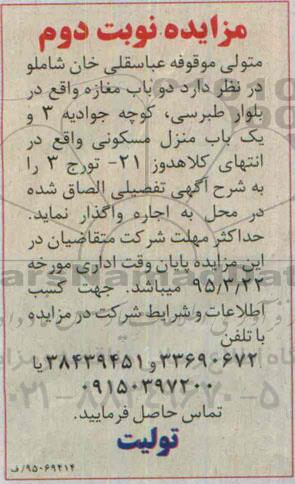 مزایده نوبت دوم
متولی موقوفه عباسقلی خان شاملو
در نظر دارد دو باب مغازه واقع در
بلوار طبرسی، کوچه جوادیه ۳ و
یک باب منزل مسکونی واقع در
انتهای کلاهدوز ۲۱- تورج ۳ را
به شرح آگهی تفصیلی الصاق شده
در محل به اجاره واگذار نماید.
حداکثر مهلت شرکت متقاضیان در
این مزایده پایان وقت اداری مورخه
۹۵/۳/۲۲ میباشد. جهت کسب
اطلاعات و شرایط شرکت در مزایده
با تلفن
۳۳۶۹۰۶۷۲ و ۳۸۴۳۹۴۵۱ یا
۰۹۱۵۰۳۹۷۲۰۰
تماس حاصل فرمایید.
تولیت
۹۵۰۶۹۴۱۴/ف